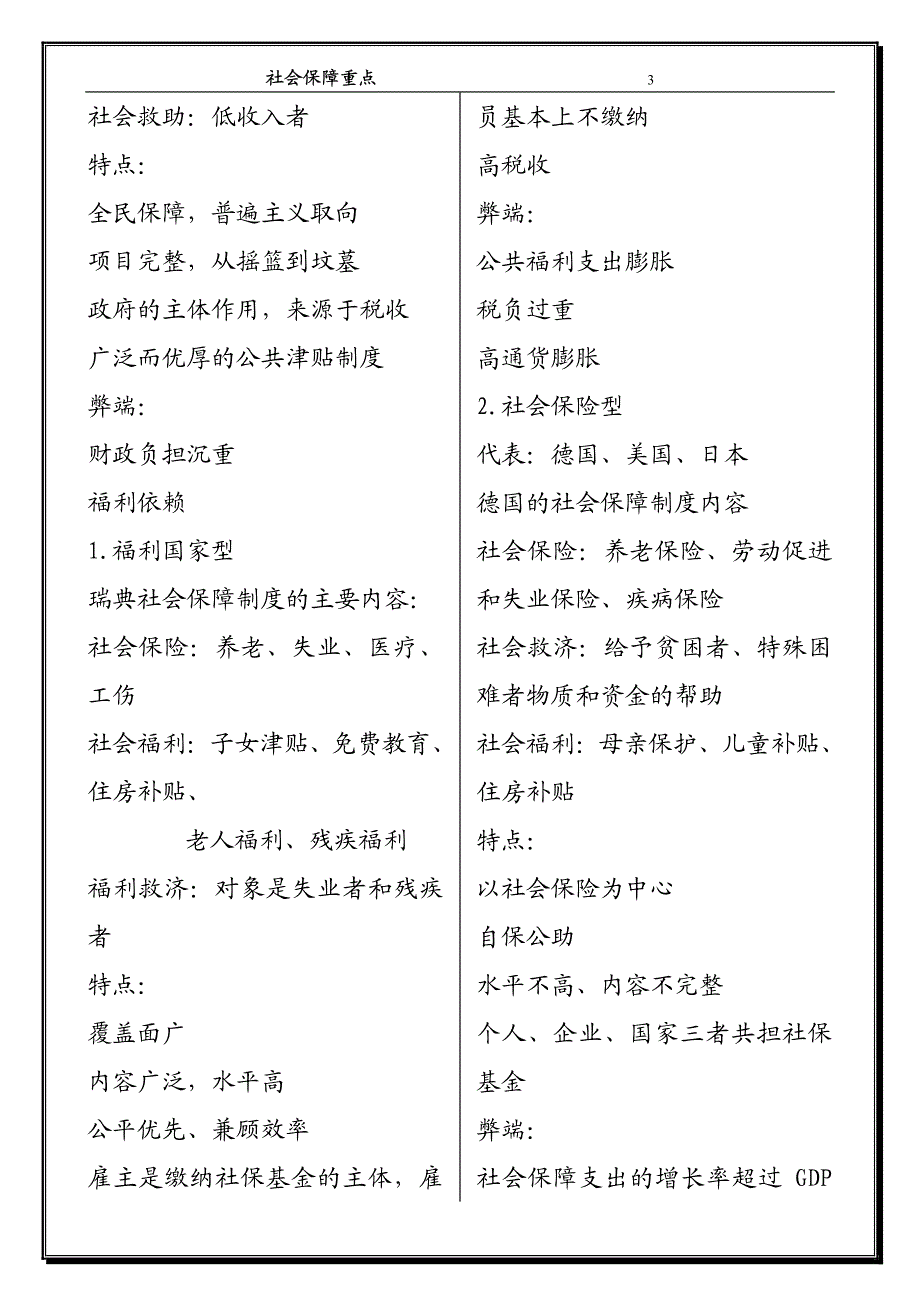 社会保障重点 3
社会救助：低收入者
特点：
全民保障，普遍主义取向
项目完整，从摇篮到坟墓
政府的主体作用，来源于税收
广泛而优厚的公共津贴制度
弊端：
财政负担沉重
福利依赖
1.福利国家型
瑞典社会保障制度的主要内容：
社会保险：养老、失业、医疗、
工伤
社会福利：子女津贴、免费教育、
住房补贴、
老人福利、残疾福利
福利救济：对象是失业者和残疾
者
特点：
覆盖面广
内容广泛，水平高
公平优先、兼顾效率
雇主是缴纳社保基金的主体，雇
员基本上不缴纳
高税收
弊端：
公共福利支出膨胀
税负过重
高通货膨胀
2.社会保险型
代表：德国、美国、日本
德国的社会保障制度内容
社会保险：养老保险、劳动促进
和失业保险、疾病保险
社会救济：给予贫困者、特殊困
难者物质和资金的帮助
社会福利：母亲保护、儿童补贴、
住房补贴
特点：
以社会保险为中心
自保公助
水平不高、内容不完整
个人、企业、国家三者共担社保
基金
弊端：
社会保障支出的增长率超过 GDP